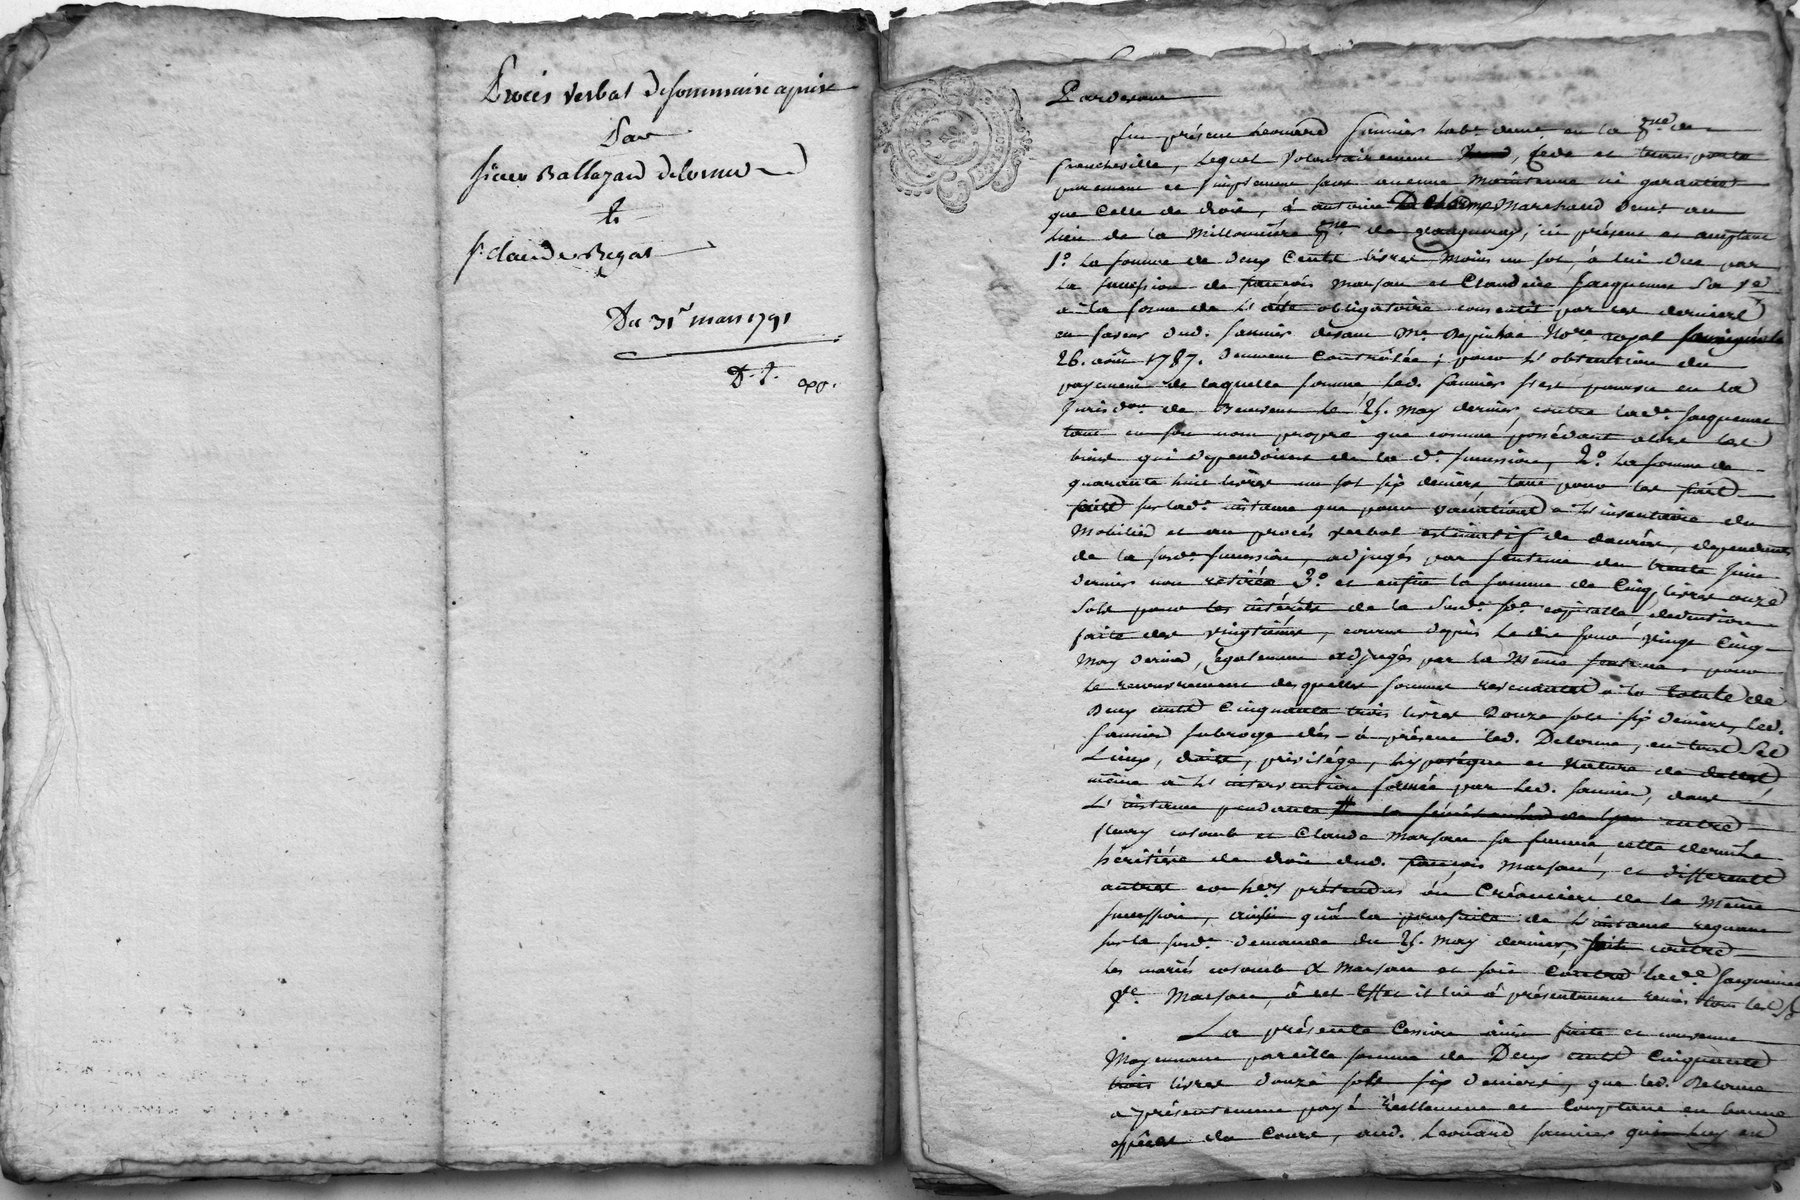 Procès verbal de sommaire aprise
Par
sieur Baltazard Delorme
C.
sr. Claude Regat
Du 31r mars 1791
D. l. exp.
Pardevant
fut présent Leonard Saunier hab. dem. en la psse de
francheville, Lequel volontairement vend, cede et transporte
purement et simplement sans aucune maintenue ni garantie
que Celle de droit, á antoine Delorme Marchand demt. au
Lieu de la Millonniere psse de, ici présent et acceptant
1o. La somme de deux Cents livres moins un sol, á lui due par
la succession de françois Marsau et Claudine Jacquemet Sa fe
a la forme de l'acte obligatoire consentit par ces derniers
en faveur dud. Saunier devant Me. Nore. royal
26. août 1787. duement Controlée; pour l'obtention du
payement de laquelle somme led. Saunier s'est pourvu en la
Jurisdon. de le 25. may dernier, contre lade. Jacquemet
tant en son nom propre que comme possédant alors les
biens qui dependoient de la de. succession, 2o. La somme de
quarante huit livres un sol six deniers tant pour les frais
faits sur lade. instance que pour vacations a l'inventaire du
Mobilier et au procés verbal estimatif de denrées, dependants
de la susde. succession, adjugés par sentence du trente Juin
dernier non retirée 3o. et enfin la somme de Cinq livres onze
Sols pour les intérêts de la Susde. se. capitalle, deduction
faite des vingtiémes, courus depuis Ledit jour vingt Cinq
May dernier, Egalement adjugés par la Même sentence, pour
le recouvrement desquelles sommes revenantes a la totale de
Deux cents Cinquante trois livres Douze sols six deniers, led.
Saunier subroge dés-á présent led. Delorme, en tous Ses
Lieux, droits, privilége, hypotéque et Nature de dettes,
même á l'intervention formée par Led. Saunier, dans
L'instance pendante en la sénéchaussée de Lyon entre
fleury colomb et Claude Marsau sa femme cette derniere
héritiére de droit dud. françois Marsau, et differents
autres cohers prétendus ou Créanciers de la Même
succession, ainsi qu'á la poursuite de L'instance
sur la susde. demande du 25. May dernier, soit contre
les mariés colomb & Marsau et soit Contre lade. Jacquemet
Ve. Marsau, á cet Effet il lui á présentement remis tous les
La présente Cession ainsi faite et convenue
Moyennant pareille somme de Deux cents Cinquante
trois livres douze sols six deniers, que led. Delorme
a présentement payé réellement et Comptant en bonnes
espéces de Cours, aud. Leonard Saunier qui les